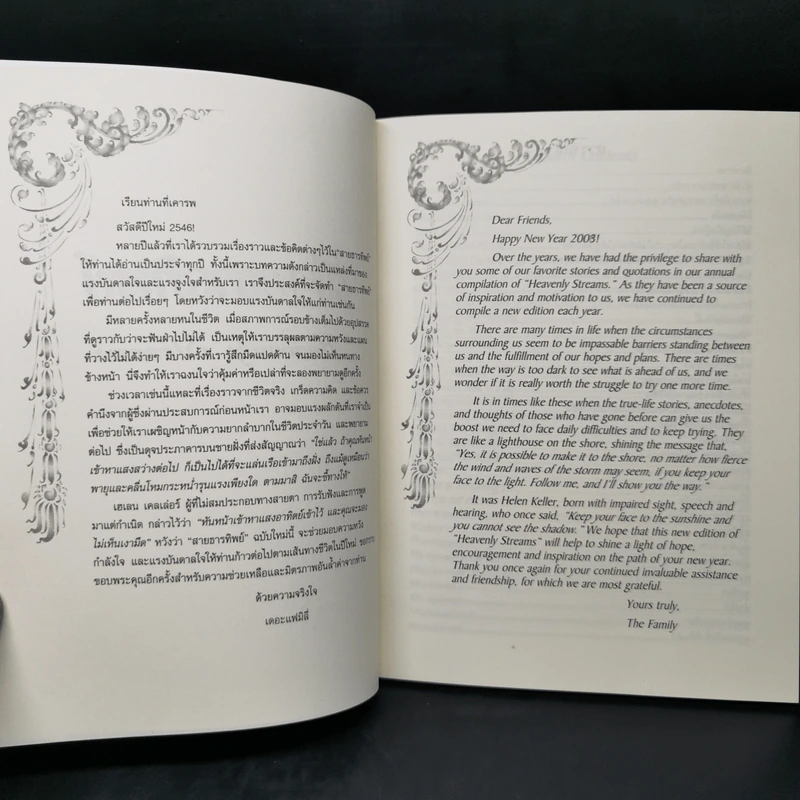 เรียนท่านที่เคารพ
สวัสดีปีใหม่ 2546!
หลายปีแล้วที่เราได้รวบรวมเรื่องราวและข้อคิดต่างๆไว้ใน"สายธารทิพย์"
ให้ท่านได้อ่านเป็นประจำทุกปี ทั้งนี้เพราะบทความดังกล่าวเป็นแหล่งที่มาของ
แรงบันดาลใจและแรงจูงใจสำหรับเรา เราจึงประสงค์ที่จะจัดทำ "สายธารทิพย์"
เพื่อท่านต่อไปเรื่อยๆ โดยหวังว่าจะมอบแรงบันดาลใจให้แก่ท่านเช่นกัน
มีหลายครั้งหลายหนในชีวิต เมื่อสภาพการณ์รอบข้างเต็มไปด้วยอุปสรรค
ที่ดูราวกับว่าจะฟันฝ่าไปไม่ได้ เป็นเหตุให้เราบรรลุผลตามความหวังและแผน
ที่วางไว้ไม่ได้ง่ายๆ มีบางครั้งที่เรารู้สึกมืดแปดด้าน จนมองไม่เห็นหนทาง
ข้างหน้า นี่จึงทำให้เราฉงนใจว่าคุ้มค่าหรือเปล่าที่จะลองพยายามดูอีกครั้ง
ช่วงเวลาเช่นนี้แหละที่เรื่องราวจากชีวิตจริง เกร็ดความคิด และข้อควร
คำนึงจากผู้ซึ่งผ่านประสบการณ์ก่อนหน้าเรา อาจมอบแรงผลักดันที่เราจำเป็น
เพื่อช่วยให้เราเผชิญหน้ากับความยากลำบากในชีวิตประจำวัน และพยายาม
ต่อไป ซึ่งเป็นดุจประภาคารบนชายฝั่งที่ส่งสัญญาณว่า "ใช่แล้ว ถ้าคุณหันหน้า
เข้าหาแสงสว่างต่อไป ก็เป็นไปได้ที่จะแล่นเรือเข้ามาถึงฝั่ง ถึงแม้ดูเหมือนว่า
พายุและคลื่นโหมกระหน่ำรุนแรงเพียงใด ตามมาสิ ฉันจะชี้ทางให้"
เฮเลน เคลเล่อร์ ผู้ที่ไม่สมประกอบทางสายตา การรับฟังและการพูด
มาแต่กำเนิด กล่าวไว้ว่า "หันหน้าเข้าหาแสงอาทิตย์เข้าไว้ และคุณจะมอง
ไม่เห็นเงามืด" หวังว่า "สายธารทิพย์" ฉบับใหม่นี้ จะช่วยมอบความหวัง
กำลังใจ และแรงบันดาลใจให้ท่านก้าวต่อไปตามเส้นทางชีวิตในปีใหม่
ขอบพระคุณอีกครั้งสำหรับความช่วยเหลือและมิตรภาพอันล้ำค่าจากท่าน
ด้วยความจริงใจ
เดอะแฟมิลี่
Dear Friends,
Happy New Year 2003!
Over the years, we have had the privilege to share with
you some of our favorite stories and quotations in our annual
compilation of "Heavenly Streams." As they have been a source
of inspiration and motivation to us, we have continued to
compile a new edition each year.
There are many times in life when the circumstances
surrounding us seem to be impassable barriers standing between
us and the fulfillment of our hopes and plans. There are times
when the way is too dark to see what is ahead of us, and we
wonder if it is really worth the struggle to try one more time.
It is in times like these when the true-life stories, anecdotes,
and thoughts of those who have gone before can give us the
boost we need to face daily difficulties and to keep trying. They
are like a lighthouse on the shore, shining the message that,
"Yes, it is possible to make it to the shore, no matter how fierce
the wind and waves of the storm may seem, if you keep your
face to the light. Follow me, and I'll show you the way."
It was Helen Keller, born with impaired sight, speech and
hearing, who once said, "Keep your face to the sunshine and
you cannot see the shadow." We hope that this new edition of
"Heavenly Streams" will help to shine a light of hope,
encouragement and inspiration on the path of your new year.
Thank you once again for your continued invaluable assistance
and friendship, for which we are most grateful.
Yours truly,
The Family